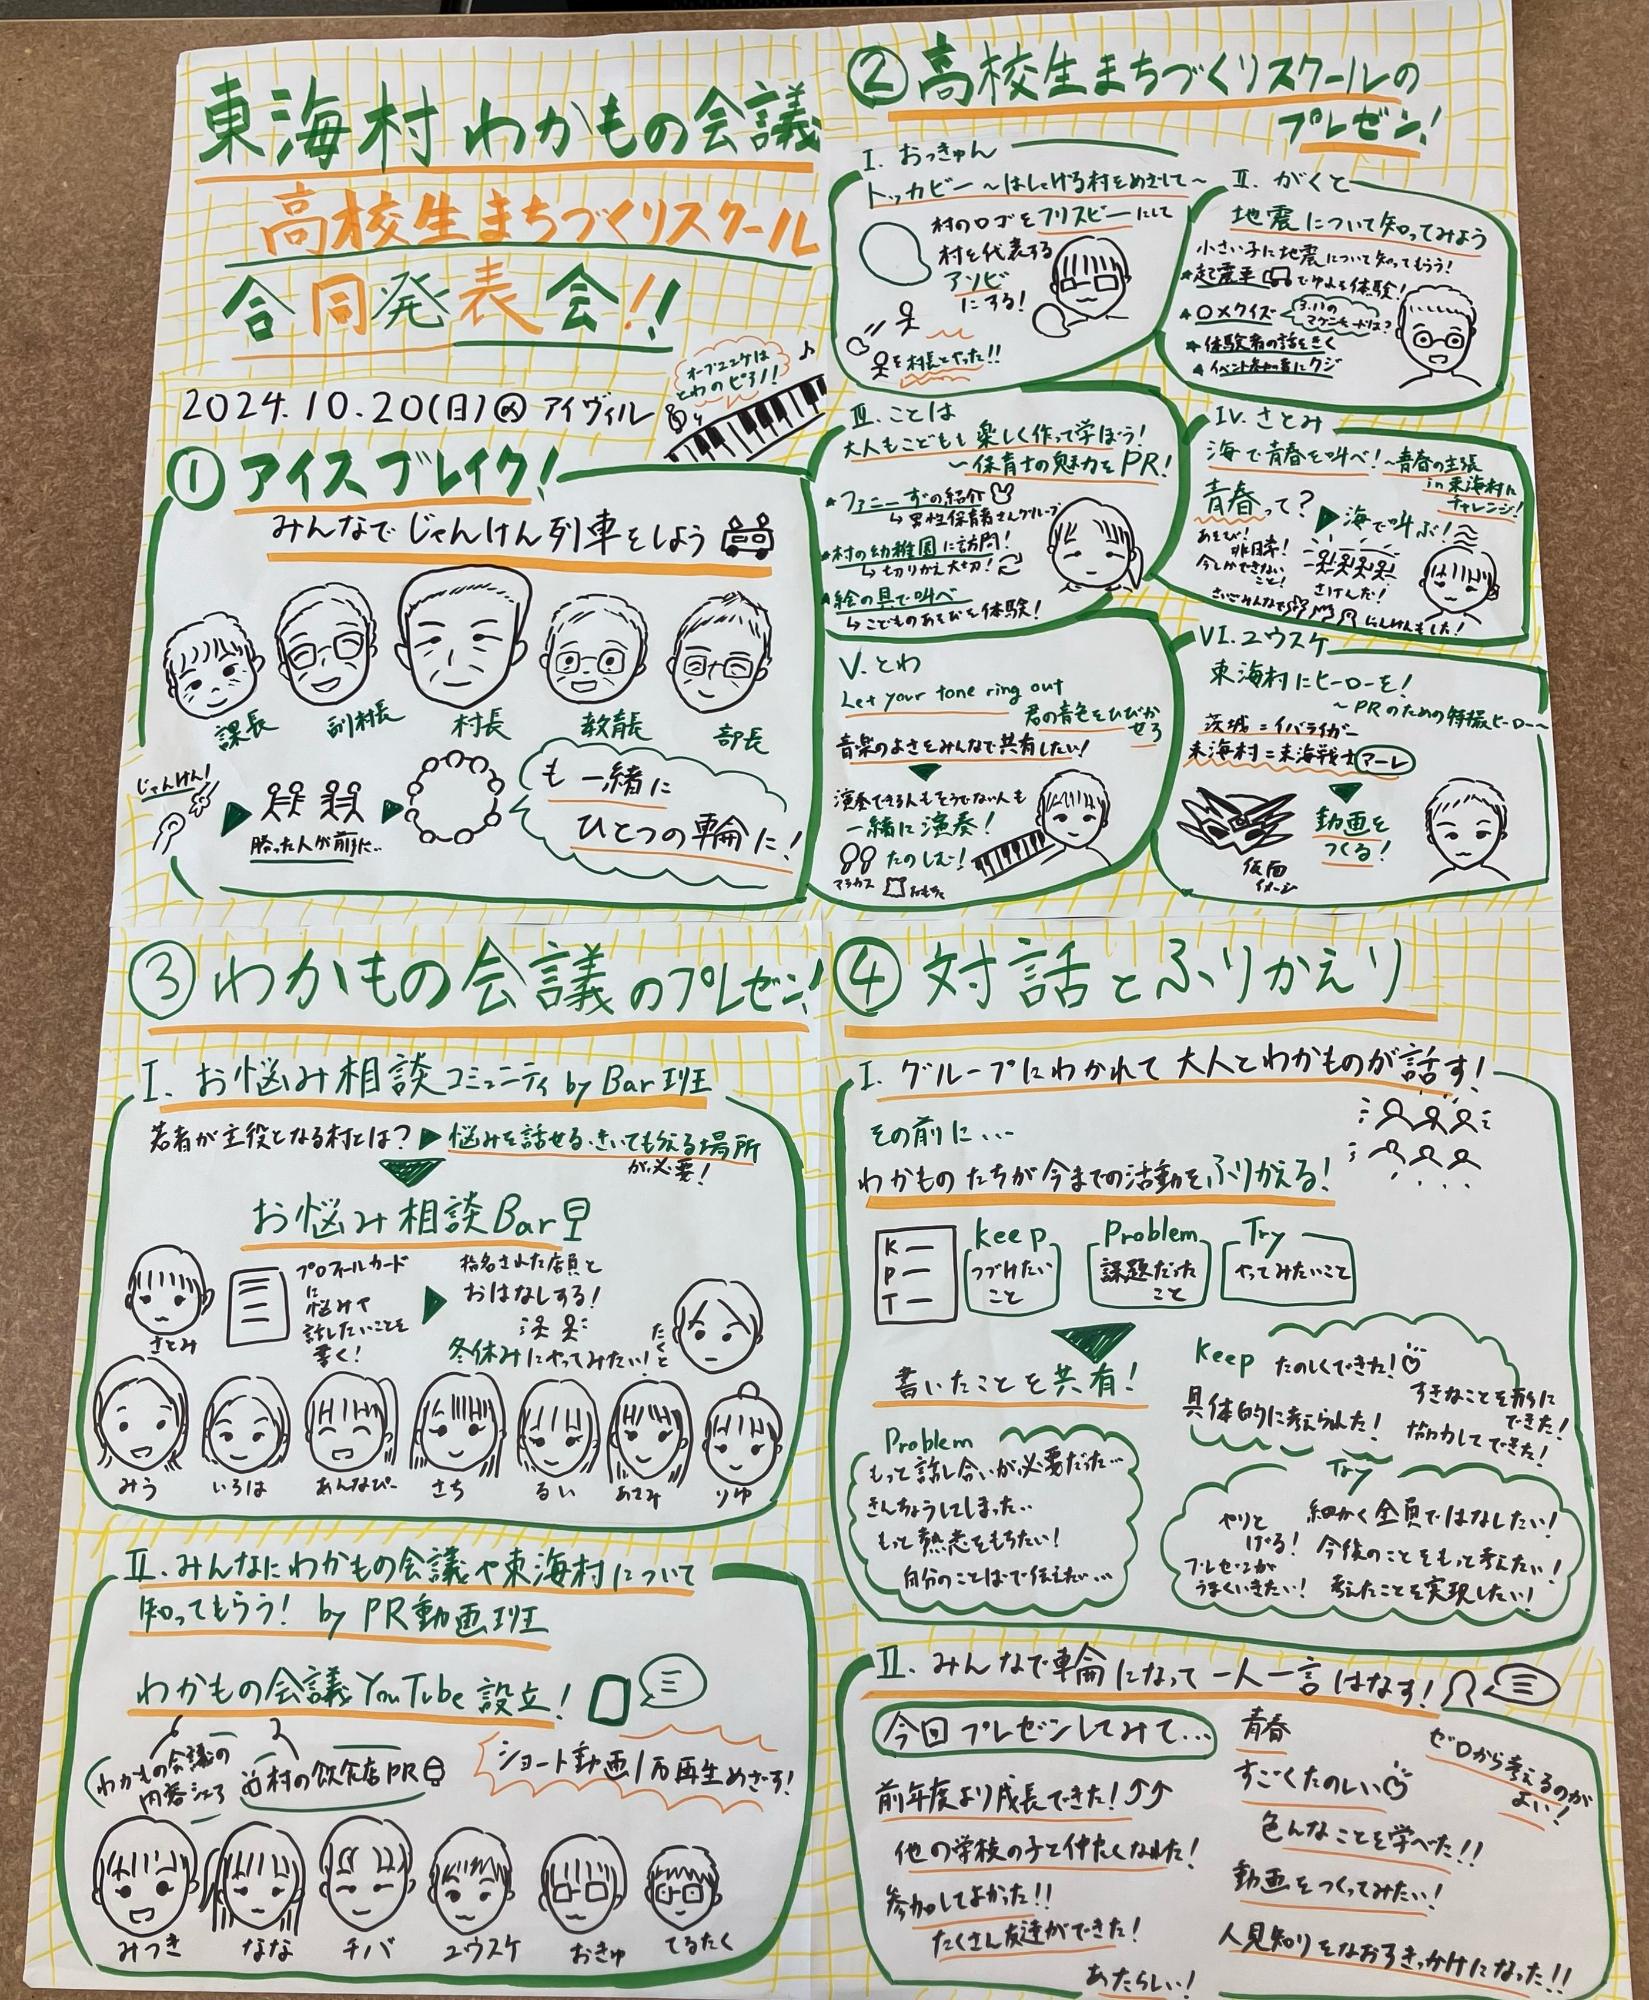 東海村わかもの会議
高校生まちづくりスクール
合同発表会!!
2024.10.20(日)@アイヴィル
オープニングは
とわのピアノ!!
① アイスブレイク!
みんなでじゃんけん列車をしよう
課長
副村長
村長
教育長
部長
じゃんけん!
勝った人が前に..
も一緒に
ひとつの輪に!
② 高校生まちづくりスクールの
プレゼン!
I. おっきゅん
トッカビー〜はしゃげる村をめざして〜
村のロゴをフリスビーにして
村を代表する
アソビ
にする!
を村長とやった!!
II. がくと
地震について知ってみよう
小さい子に地震について知ってもらう!
★起震車でゆれを体験!
★〇×クイズ
3.11の
マグニチュードは?
★体験者の話をきく
★イベント参加者にクジ
III. ことは
大人もこどもも楽しく作って学ぼう!
〜保育士の魅力をPR!
★ファニーずの紹介
↳男性保育者さんグループ
★村の幼稚園に訪問!
↳切りかえ大切!
★絵の具で叫べ
↳こどものあそびを体験!
IV. さとみ
海で青春を叫べ!〜青春の主張
in東海村に
チャレンジ!
青春って?
海で叫ぶ!
あそび!
非日常!
今しかできない
こと!
さけんだ!
さいごみんなで
にしけんもした!
V. とわ
Let your tone ring out
君の音色をひびか
せろ
音楽のよさをみんなで共有したい!
演奏できる人もそうでない人も
一緒に演奏!
たのしむ!
マラカス
おもちゃ
VI. ユウスケ
東海村にヒーローを!
〜PRのための特撮ヒーロー〜
茨城=イバライガー
東海村=東海戦士マーレ
動画を
つくる!
仮面
イメージ
③ わかもの会議のプレゼン!
I. お悩み相談コミュニティ by Bar班
若者が主役となる村とは?
悩みを話せる、きいてもらえる場所
が必要!
お悩み相談Bar
プロフィールカード
に
悩みや
話したいことを
書く!
指名された店員と
おはなしする!
冬休みにやってみたい!
さとみ
たくと
みう
いろは
あんなぴー
さち
るい
あさみ
りゆ
II. みんなにわかもの会議や東海村について
知ってもらう! by PR動画班
わかもの会議YouTube設立!
わかもの会議の
内容シェア
村の飲食店PR
ショート動画1万再生めざす!
みつき
なな
チバ
ユウスケ
おきゅ
てるたく
④ 対話とふりかえり
I. グループにわかれて大人とわかものが話す!
その前に...
わかものたちが今までの活動をふりかえる!
K
P
T
Keep
つづけたい
こと
Problem
課題だった
こと
Try
やってみたいこと
書いたことを共有!
Keep
たのしくできた!
具体的に考えられた!
すきなことを形に
できた!
協力してできた!
Problem
もっと話し合いが必要だった...
きんちょうしてしまった..
もっと熱意をもちたい!
自分のことばで伝えたい...
Try
やりと
げる!
プレゼンが
うまくいきたい!
細かく全員ではなしたい!
今後のことをもっと考えたい!
考えたことを実現したい!
II. みんなで輪になって一人一言はなす!
今回プレゼンしてみて...
前年度より成長できた!
他の学校の子と仲よくなれた!
参加してよかった!!
たくさん友達ができた!
あたらしい!
青春
すごくたのしい
色んなことを学べた!!
動画をつくってみたい!
人見知りをなおすきっかけになった!!
ゼロから考えるのが
よい!